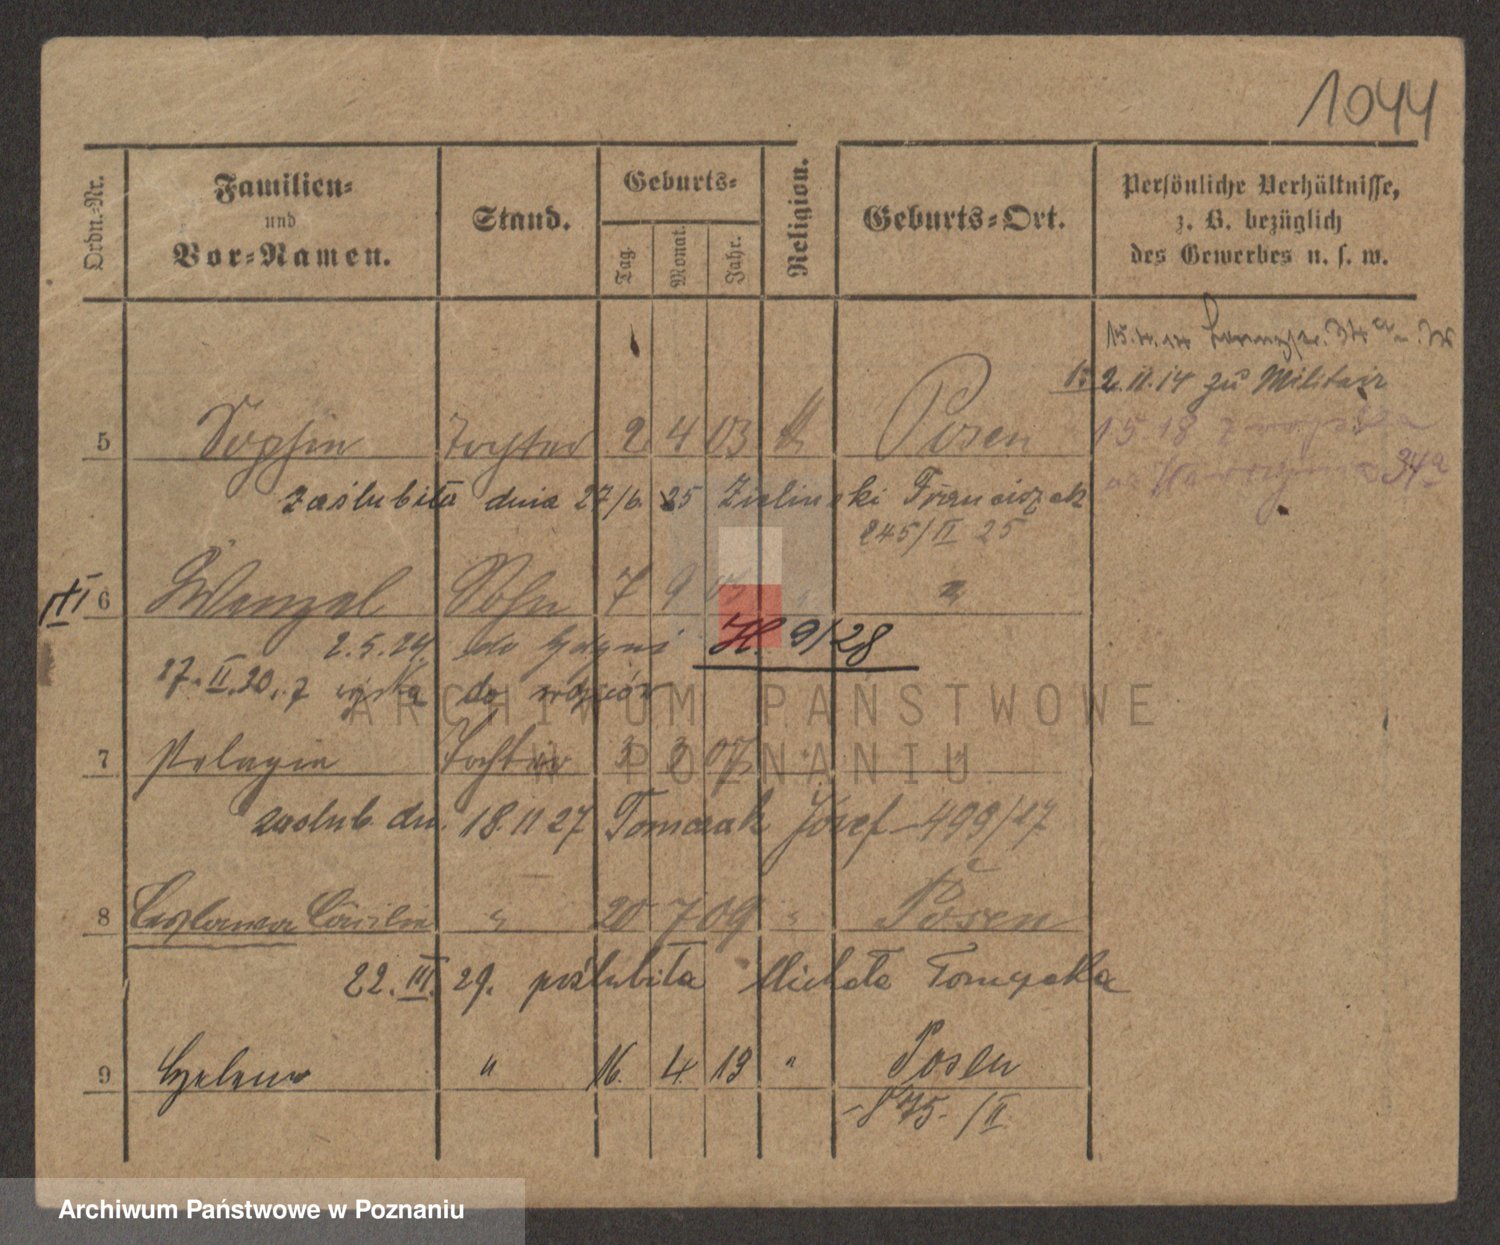 1044
Ordn.-Nr.
Familien-
und
Vor-Namen.
Stand.
Geburts-
Tag.
Monat.
Jahr.
Religion.
Geburts-Ort.
Persönliche Verhältnisse,
z. B. bezüglich
des Gewerbes u. s. w.
15.4.14 34a
2.11.14 zu Militair
5 Sophie Tochter 2 4 03 k Posen
15 18
34a
zaślubiła dnia 27/6. 25 Zielinski Franciszek
245/II 25
6 Wenzel Sohn 7 9 05 " "
2.5.24 do Gdyni H. 9/28
17.II.30. z wojska do
7 Pelagia Tochter 3 3 07 " "
zaślub. dn. 18.11 27 Tomczak Józef 499/27
8 Czesława Cäcilie " 20 7 09 " Posen
22.III.29. poślubiła Michała Tomyaka
9 Helena " 16. 4. 13 " Posen
875./II.
ARCHIWUM PAŃSTWOWE
W POZNANIU
Archiwum Państwowe w Poznaniu